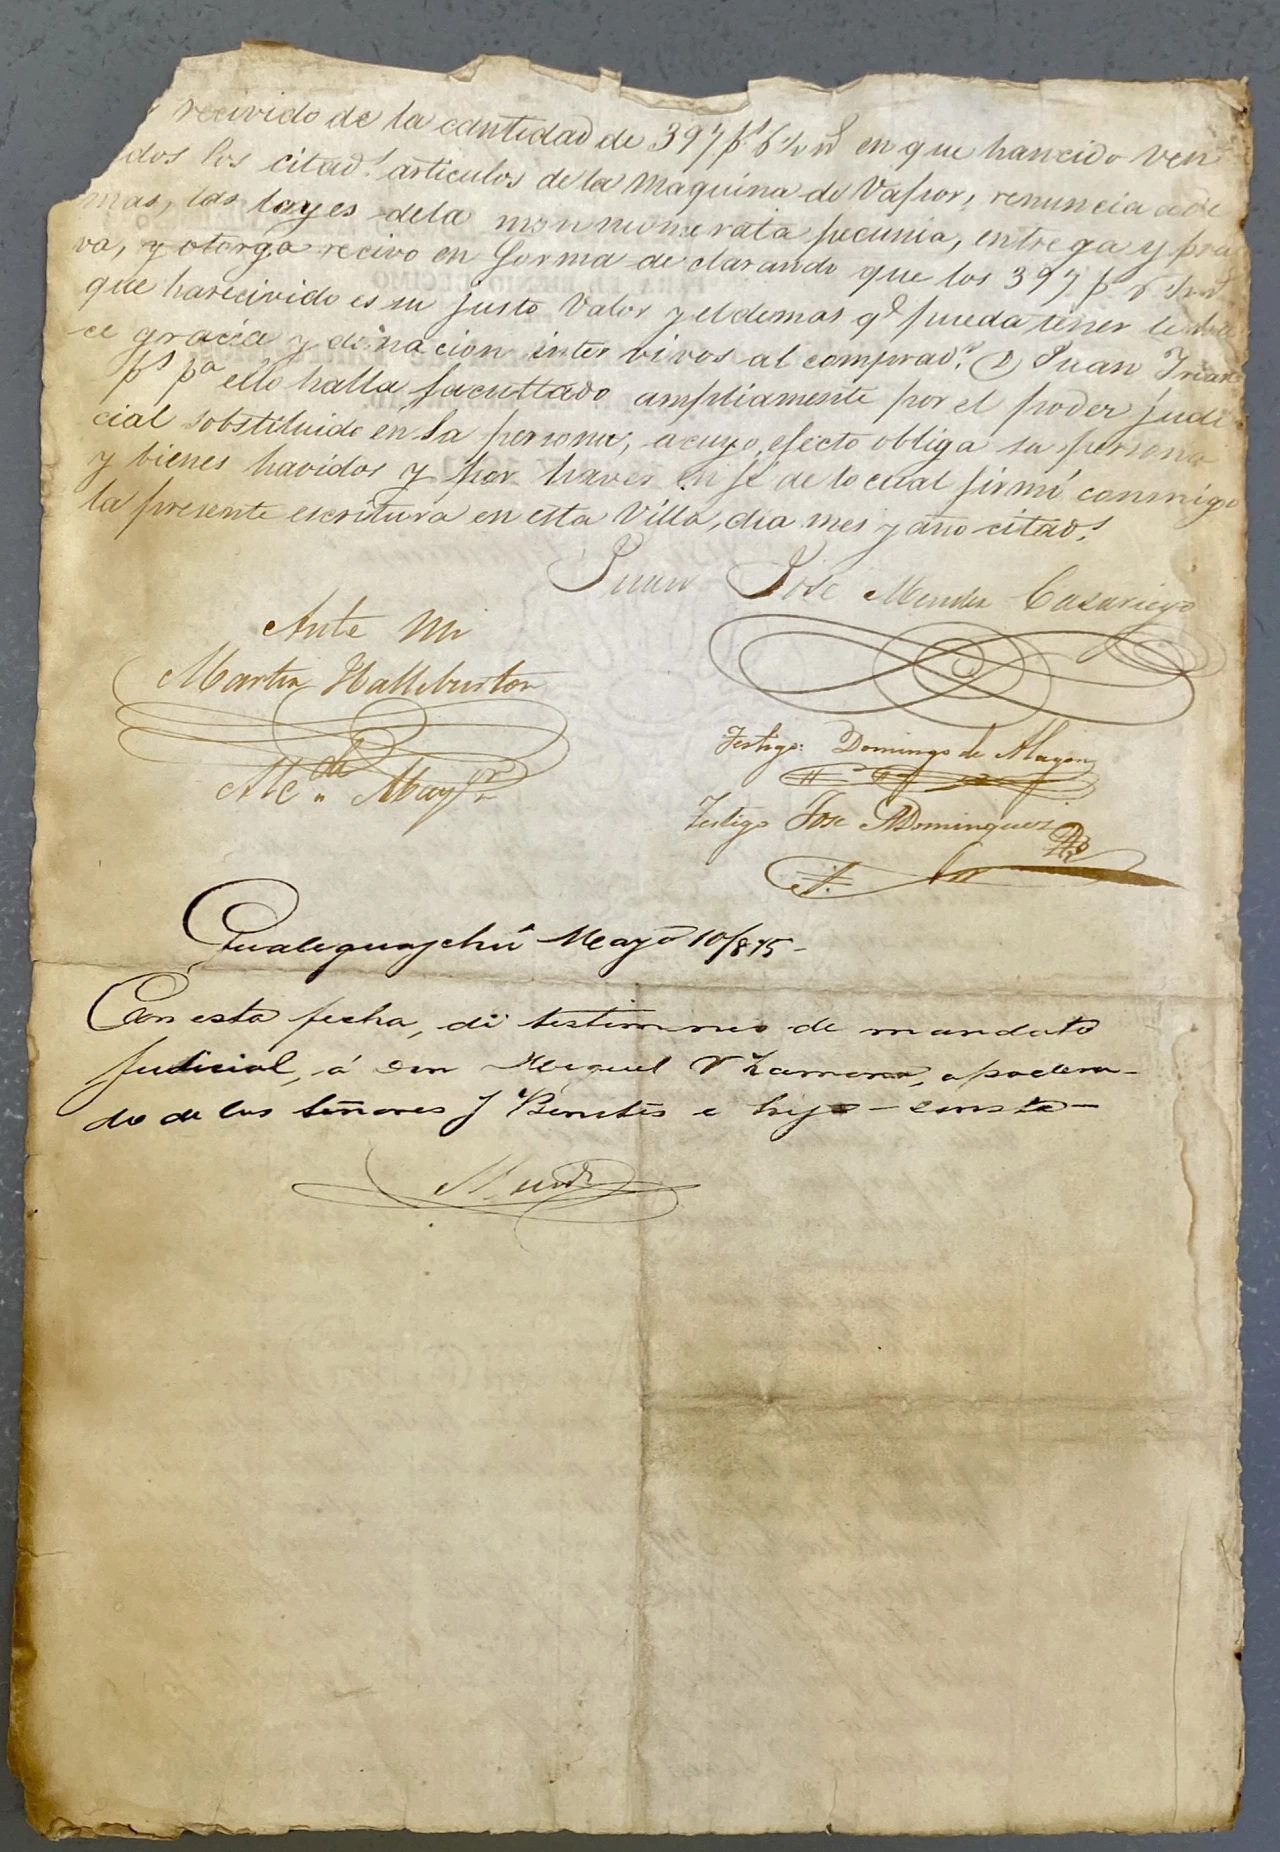 recivido de la cantidad de 397 p.s 6 en que han cido ven
didos los citad.s articulos de la Maquina de Vapor, renuncia
mas, las layes dela non numerata pecunia, entrega y prue
va, y otorga recivo en forma declarando que los 397 p.s 6
que ha recivido es su justo Valor y el demas q.e pueda tener le
ce gracia y donacion inter vivos al comprad.r D Juan
p.s p.a ello halla facultado ampliamente por el poder judi
cial sobstituido en sa persona; acuyo efecto obliga sa persona
y bienes havidos y por haver en fé de lo cual firmó conmigo
la presente escritura en esta Villa, dia mes y año citad.s
Juan José Mendez Casariego
Ante Mi
Martin Halliburton
Alc.de May.r
Testigo: Domingo de
Testigo José Dominguez
Gualeguaychú Mayo 10/875-
Con esta fecha, di testimonio de mandato
Judicial, á don Miguel V Zamora, apodera-
do de los señores J Benites e hijo - consta -